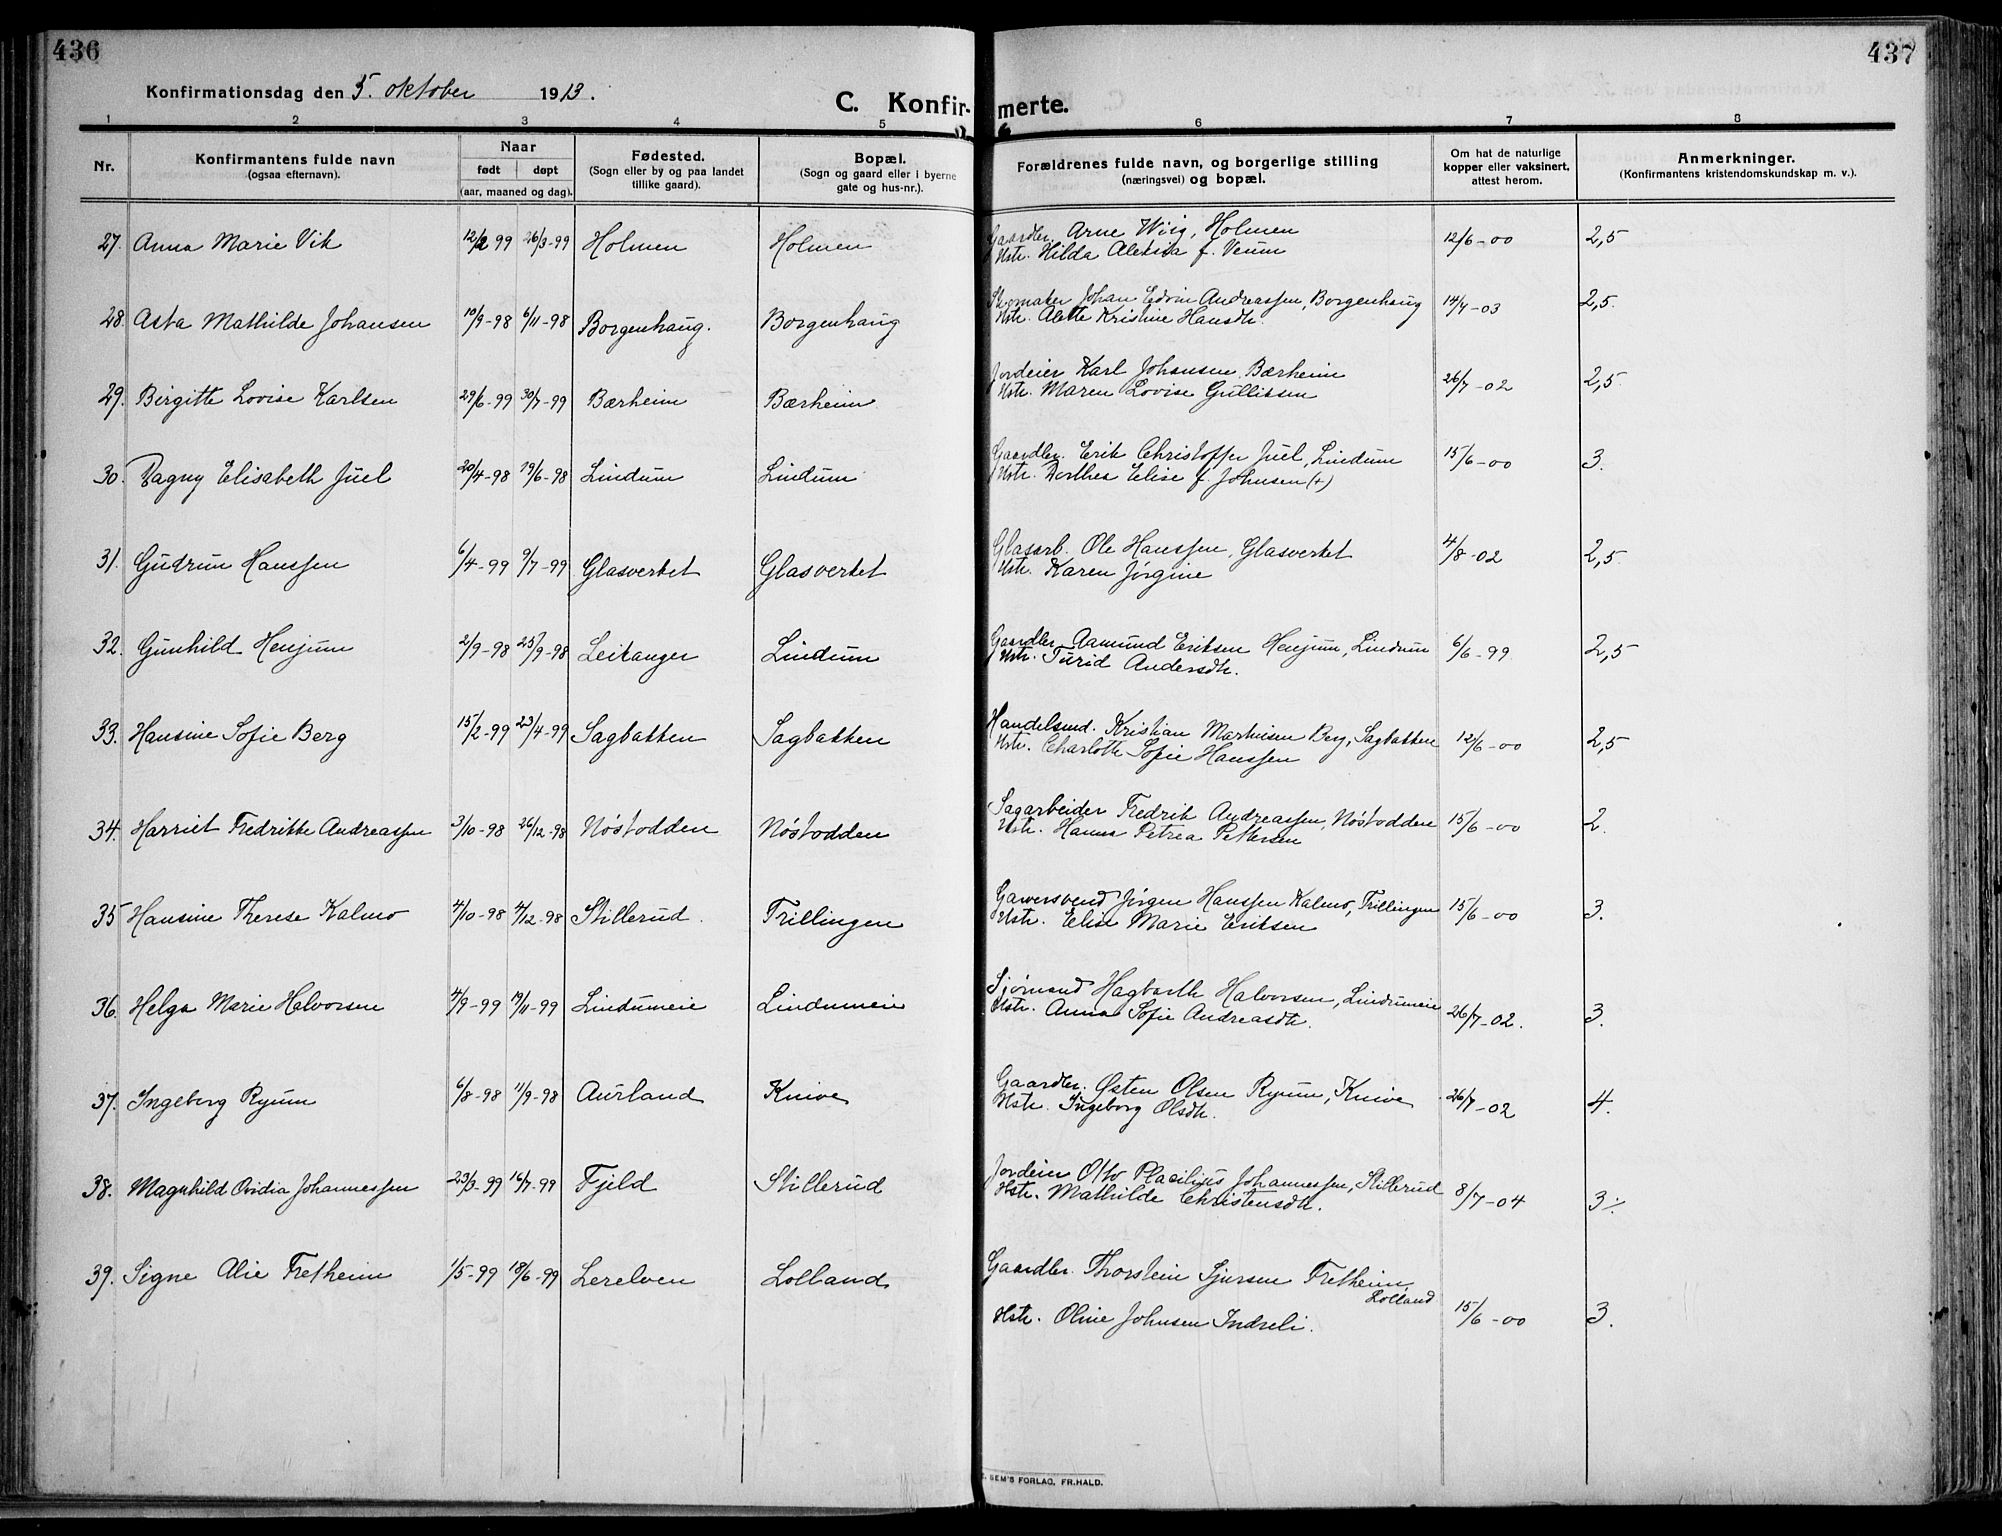 436
437
Konfirmationsdag den 5. oktober 1913.
C. Konfir-merte.
1 2 3 4 5 6 7 8
Nr.
Konfirmantens fulde navn
(ogsaa efternavn).
Naar
født døpt
(aar, maaned og dag).
Fødested.
(Sogn eller by og paa landet
tillike gaard).
Bopæl.
(Sogn og gaard eller i byerne
gate og hus-nr.).
Forældrenes fulde navn, og borgerlige stilling
(næringsvei) og bopæl.
Om hat de naturlige
kopper eller vaksinert,
attest herom.
Anmerkninger.
(Konfirmantens kristendomskundskap m. v.).
27. Anna Marie Vik 12/2 99 26/3-99 Holmen Holmen Gaardbr. Arne Wiig, Holmen 12/6-00 2,5
Hstr. Hilda Aleksia f. Veum
28. Asta Mathilde Johansen 10/9-98 6/11-98 Borgenhaug. Borgenhaug Skomaker Johan Edvin Andreassen, Borgenhaug 14/7-03 2,5.
Hstr. Alette Kristine Hansdtr.
29. Birgitte Lovise Karlsen 29/6-99 30/7-99 Bærheim Bærheim Jordeier Karl Johansen Bærheim 26/7-02 2,5.
Hstr. Maren Lovise Gulliksen
30. Dagny Elisabeth Juel 20/4-98 19/6-98 Lindum Lindum Gaardbr. Erik Christoffer Juel, Lindum 15/6-00 3.
Hstr. Dorthea Elise f. Johnsen (+)
31. Gudrun Hanssen 6/4-99 9/7-99 Glasverket Glasverket Glasarb. Ole Hanssen, Glasverket 4/8-02 2,5.
Hstr. Karen Jørgine
32. Gunhild Henjum 2/9-98 25/9-98 Leikanger Lindum Gaardbr. Aamund Eriksen Henjum, Lindum 6/6-99 2,5
Hstr. Turid Andersdtr.
33. Hansine Sofie Berg 15/2-99 23/4-99 Sagbakken Sagbakken Handelsmd. Kristian Marhusen Berg, Sagbakken 12/6-00 2,5
Hstr. Charlotte Sofie Hanssen
34. Harriet Fredrikke Andreassen 3/10-98 26/12-98 Nøstodden Nøstodden Sagarbeider Fredrik Andreassen, Nøstodden 15/6-00 2.
Hstr. Hanna Petrea Pettersen
35 Hansine Therese Kalmo 4/10-98 4/12-98 Stillerud. Trillingen Garversvend Jørgen Hanssen Kalmo, Trillingen 15/6-00 3.
Hstr. Elise Marie Eriksen
36. Helga Marie Halvorsen 4/9-99 19/11-99 Lindumeie Lindumeie Sjømand Hagbarth Halvorsen, Lindumeie 26/7-02. 3.
Hstr. Anna Sofie Andreasdtr.
37. Ingeborg Ryum 6/8-98 11/9-98 Aurland Knive Gaardbr. Østen Olsen Ryum, Knive 26/7-02 4.
Hstr. Ingeborg Olsdtr.
38. Magnhild Ovidia Johannessen 23/3-99 16/7-99 Fjeld Stillerud Jordeier Otto Placilius Johannessen, Stillerud 8/7-04 3
Hstr. Mathilde Christensdtr.
39. Signe Alie Fretheim 1/5-99 18/6-99 Lerelven Lolland Gaardbr. Thorstein Sjursen Fretheim,
Lolland
Hstr. Oline Johnsen Indreli. 15/6-00 3.
SEM'S FORLAG, FR.HALD.